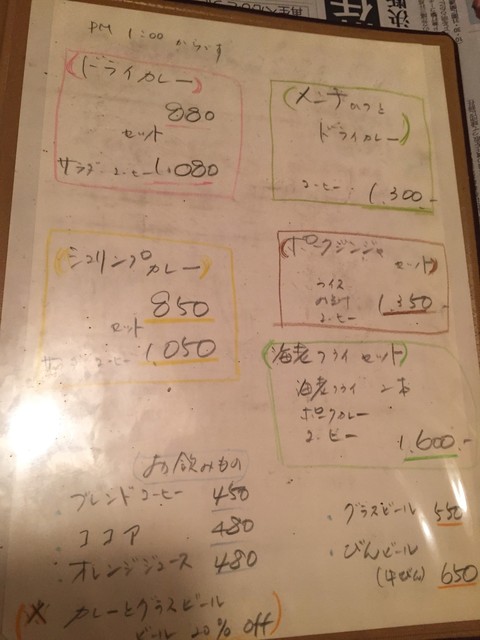 PM 1:00からです
(ドライカレー)
880
セット
サラダ コーヒー 1,080
(メンチかつと
ドライカレー)
コーヒー 1,300.-
(シュリンプカレー)
850
セット
サラダ コーヒー 1,050
(ポークジンジャー
セット)
ライス
コーヒー 1,350.-
(海老フライセット)
海老フライ 二本
ポークカレー
コーヒー 1,600.-
お飲みもの
・ブレンドコーヒー 450
・ココア 480
・オレンジジュース 480
・グラスビール 550
・びんビール
(中びん) 650
(※ カレーとグラスビール
ビール 20% off)